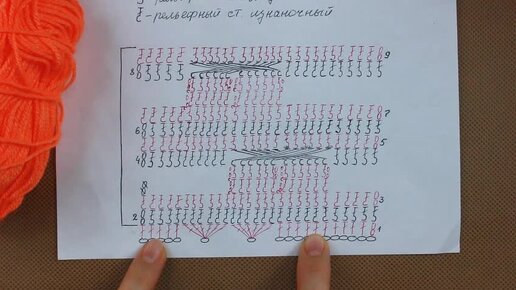 - рельефный ст. изнаночный
9
8
7
6
5
4
3
2
1